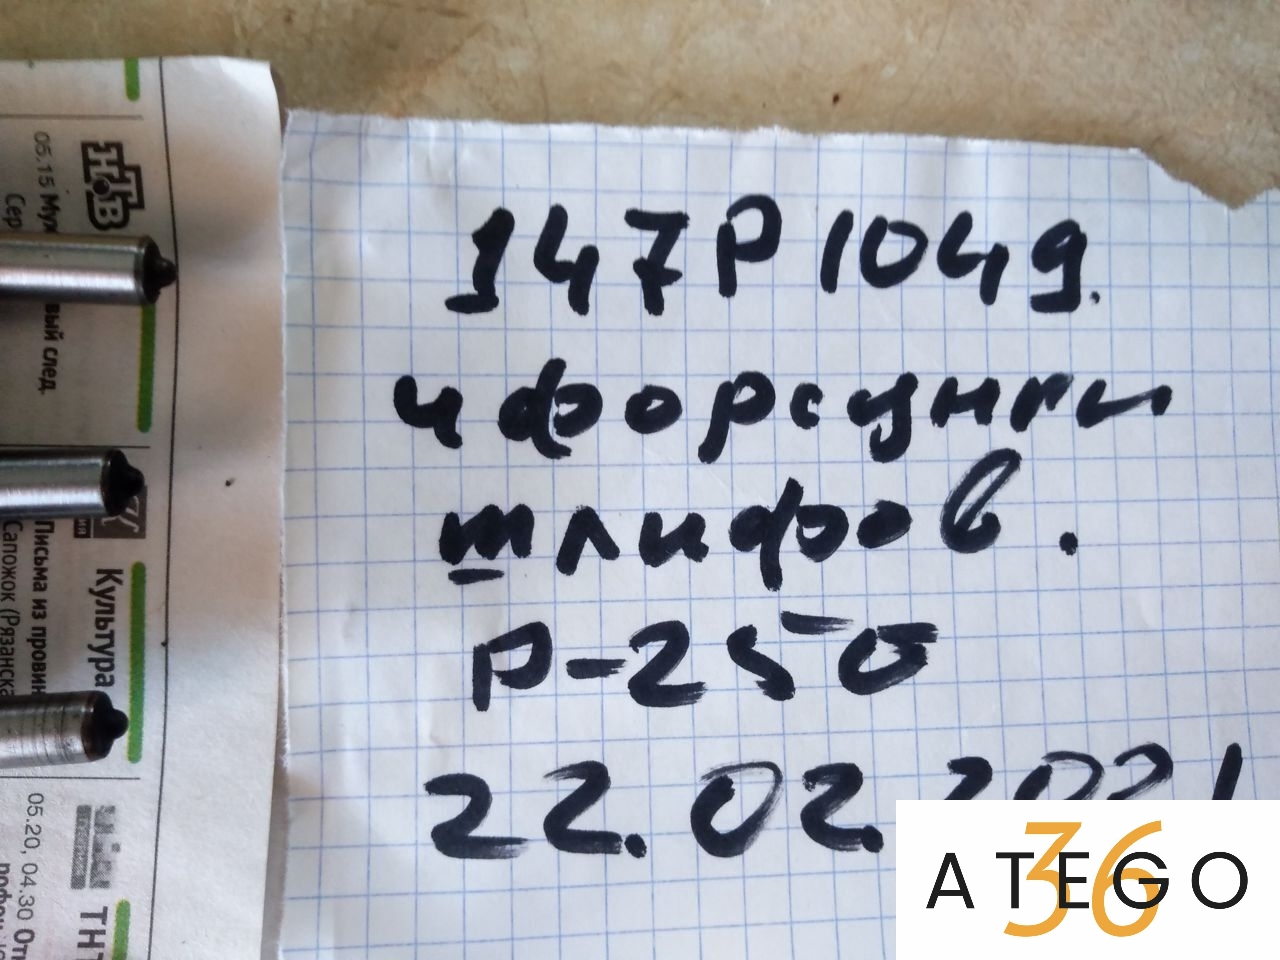 147P1049.
4 форсунки
шлифов.
P-250
22.02.2021
ATEGO
36
НТВ
05.15 Мух
Сер
вый след.
Культура
Письма из провин
Сапожок (Рязанска
ТНТ
05.20, 04.30 От